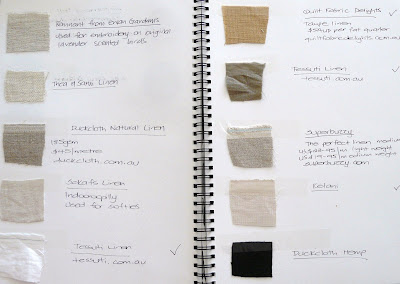 Remnant from Enon Grandma's
Used for embroidery on original
lavender scented birds
Thea & Sami Linen
Duckcloth Natural Linen
185gsm
duckcloth.com.au
Linen
Indooroopilly
Used for softies
Tessuti Linen
tessuti.com.au
Quilt Fabric Delights
Taupe linen
per fat quarter
quiltfabricdelights.com.au
Tessuti Linen
tessuti.com.au
Superbuzzy
The perfect linen medium
light weight
medium weight
superbuzzy.com
Kelani
Duckcloth Hemp